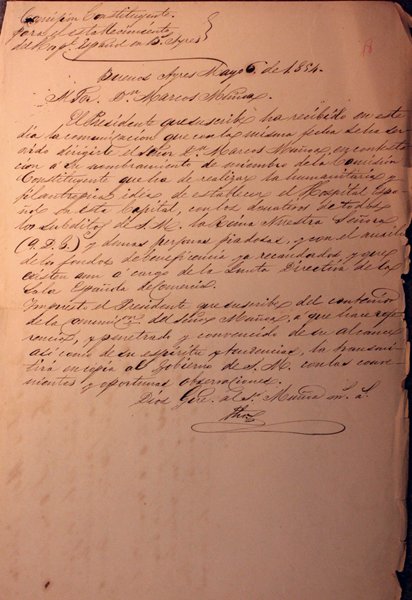 Comision Constituyente
para el establecimiento
del Hosp.l Español en Bs. Ayres
Buenos Ayres Mayo 6 de 1854.
Dn Marcos Muñoa.
El Presidente que suscribe ha recibido en este
dia la comunicacion que con la misma fecha se ha ser
vido dirigirle el Señor Dn Marcos Muñoa, en contesta
cion a su nombramiento de miembro de la Comision
Constituyente que ha de realizar la humanitaria y
filantropica idea de establecer el Hospital Espa
ñol en esta Capital, con los donativos de todos
los subditos de S. M. la Reina Nuestra Señora
(q. D. G.) y demas personas piadosas, y con el auxilio
de los fondos de beneficencia ya recaudados, y que
existen a cargo de la Junta Directiva de la
Sala Española de Comercio.
Impuesto el Presidente que suscribe del contenido
de la del Señor Muñoa, a que hace refe
rencia, y penetrado y convencido de su alcance
asi como de su espiritu y tendencias, la transmi
tirá en copia al Gobierno de S. M. con las conve
nientes y oportunas observaciones.
Dios Gue. al Sr. Muñoa m. a.